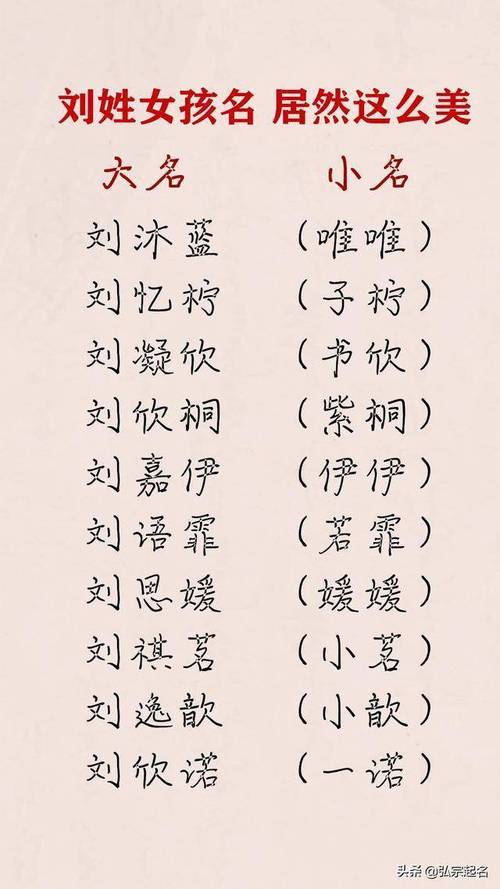 刘姓女孩名 居然这么美
大名 小名
刘沐蓝 （唯唯）
刘忆柠 （子柠）
刘凝欣 （书欣）
刘欣祠 （紫祠）
刘嘉伊 （伊伊）
刘语霏 （若霏）
刘思媛 （媛媛）
刘祺茗 （小茗）
刘逸歆 （小歆）
刘欣诺 （一诺）
头条 @弘宗起名